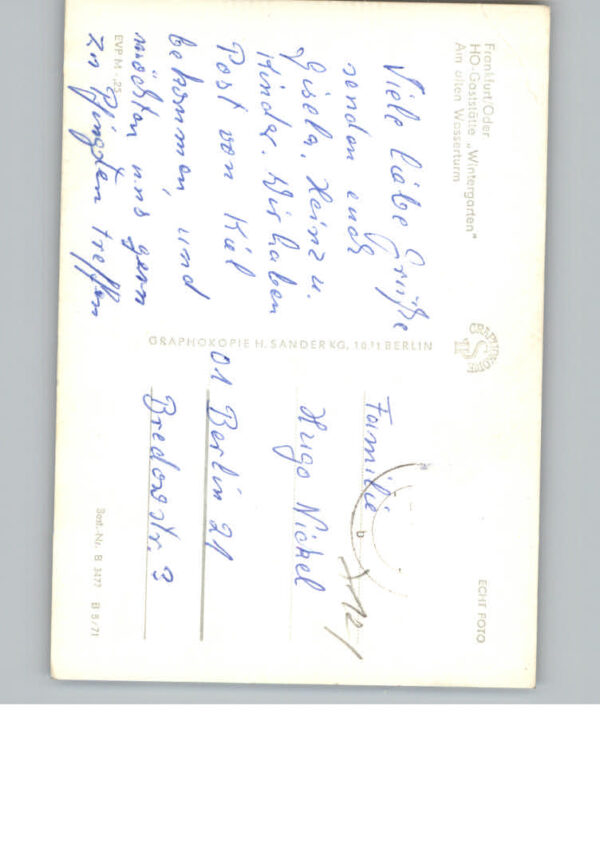 Frankfurt/Oder
HO-Gaststätte „Wintergarten"
Am alten Wasserturm
Viele liebe Grüße
senden euch
Gisela, Heinz u.
Kinder. Wir haben
Post von Kiel
bekommen, und
möchten uns gern
zu Pfingsten treffen
EVP M -,25
GRAPHOKOPIE H. SANDER KG, 1071 BERLIN
ECHT FOTO
Familie
Hugo Nickel
01 Berlin 21
Bredowstr. 3
Best.-Nr. B 3477 B 5/71